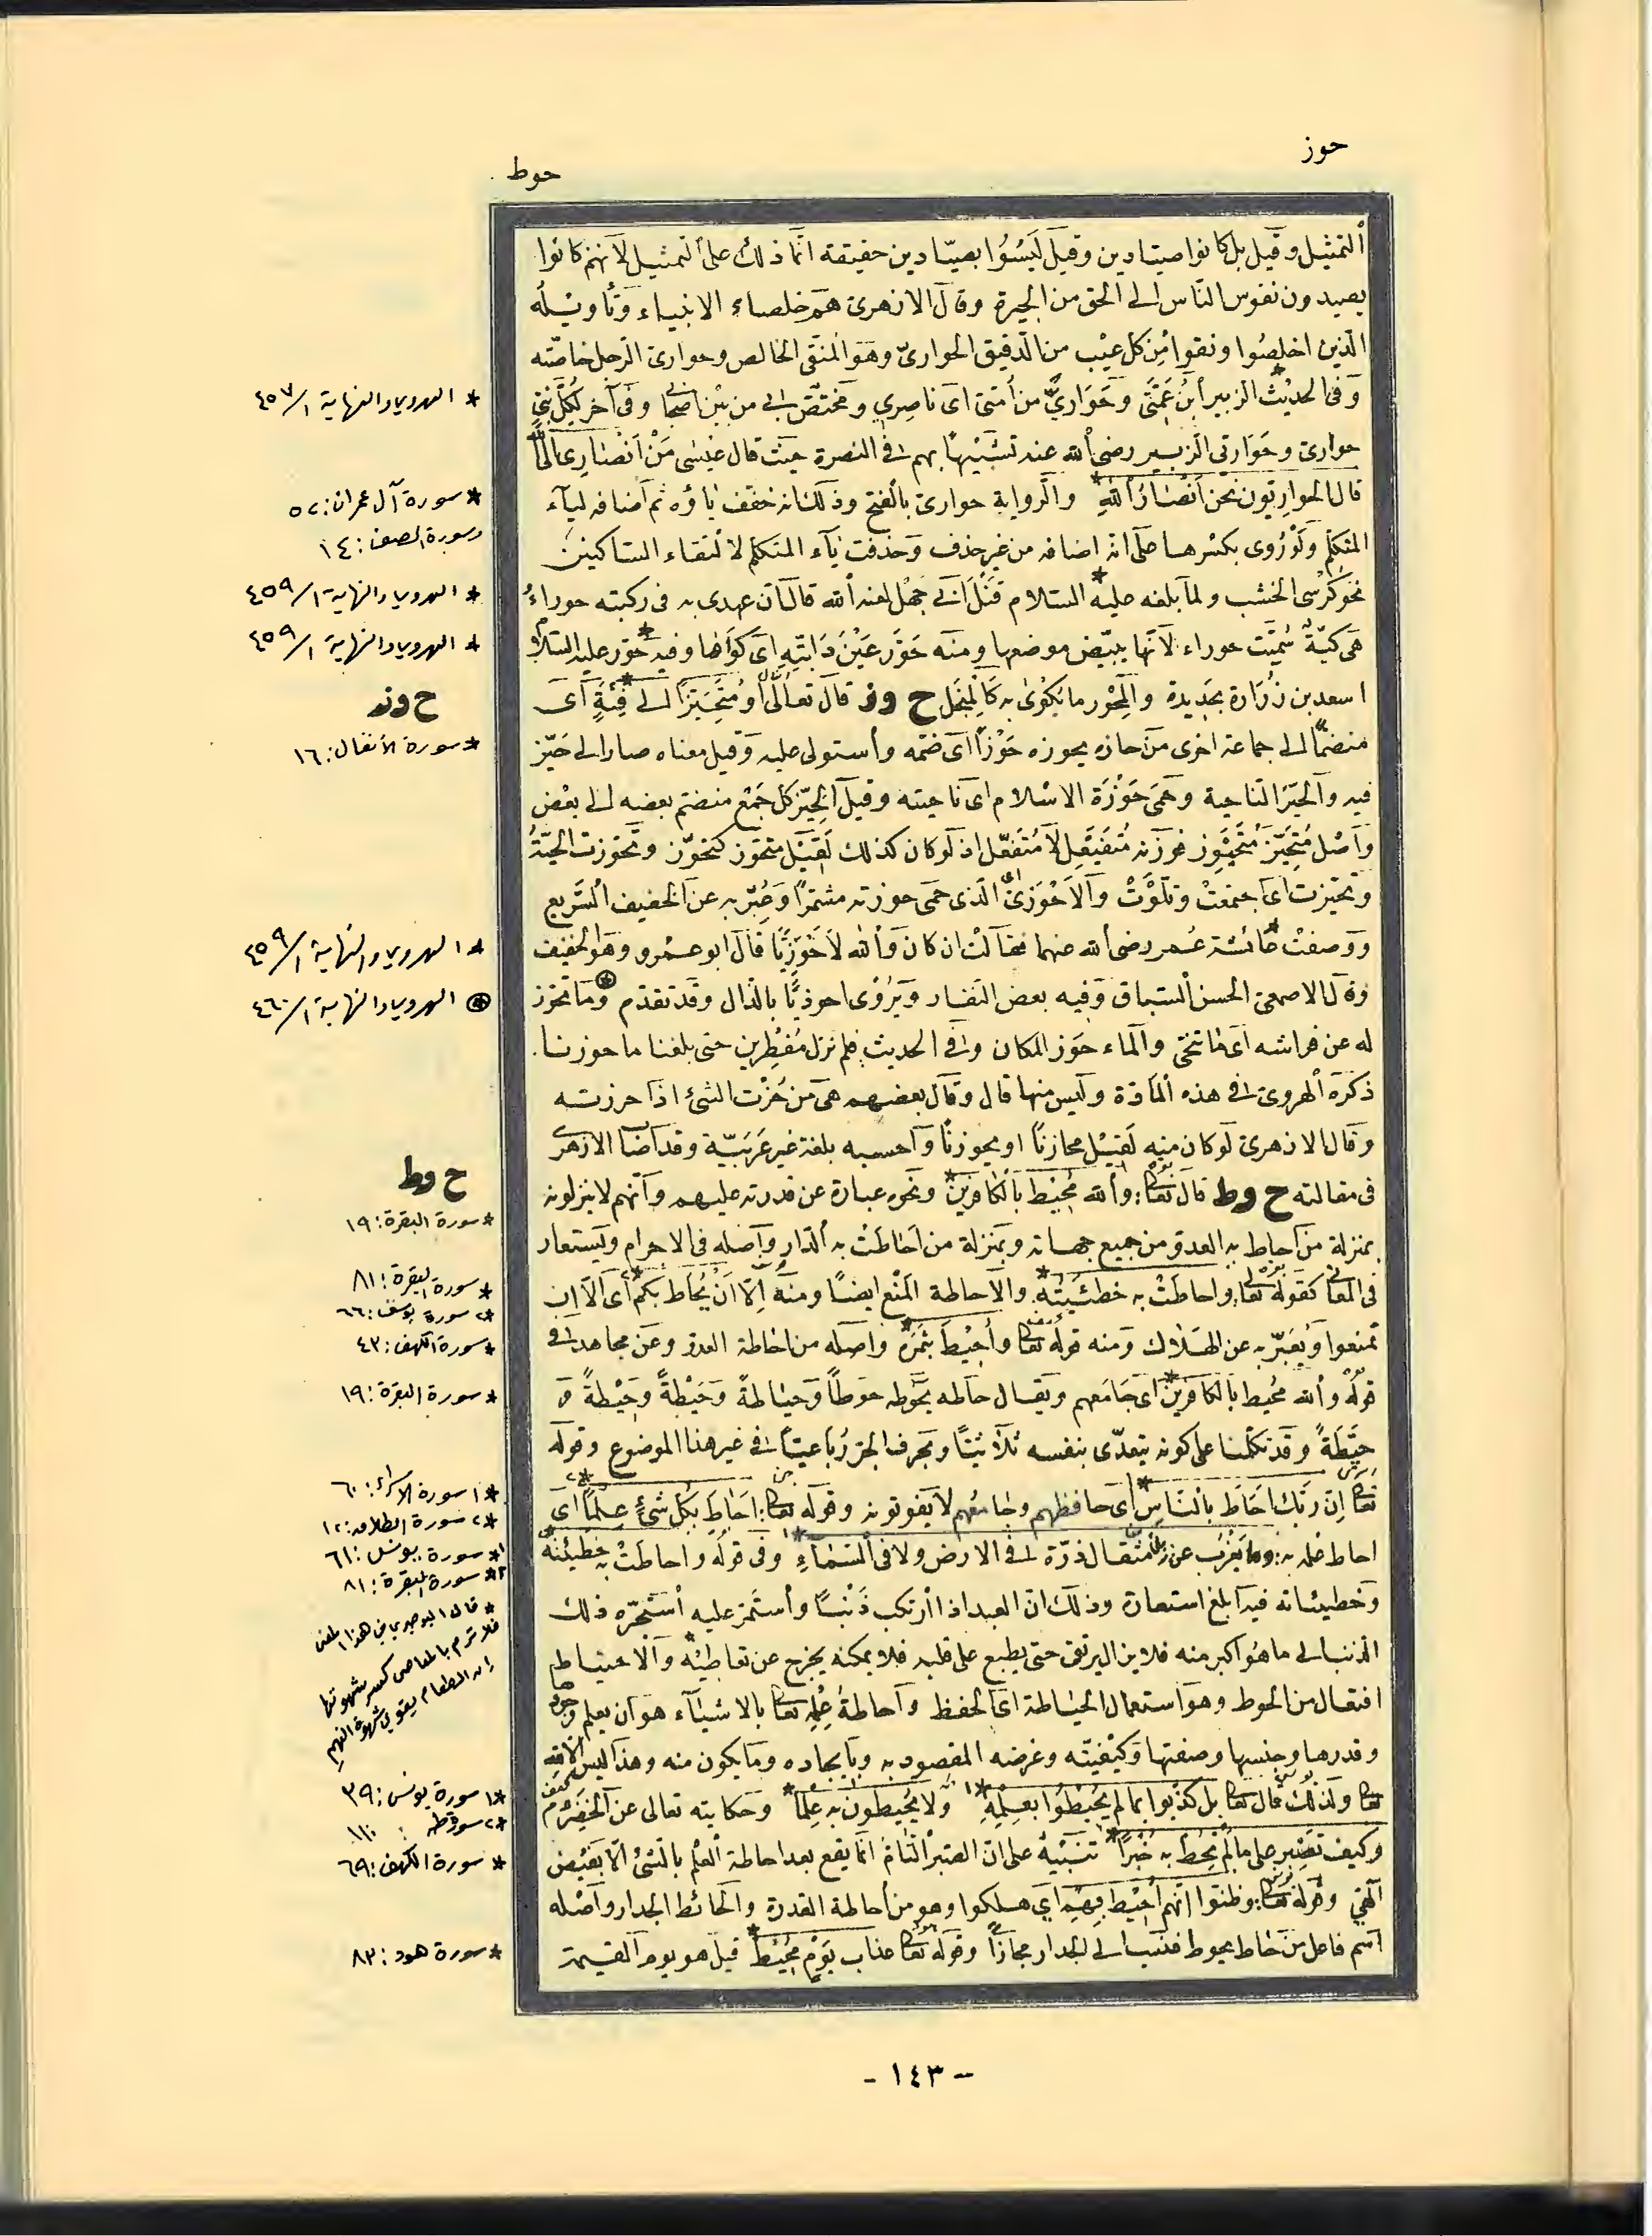 حوز
حوط
ألتمثيل وقيل بل كانوا صيادين وقيل ليسوا بصيّادين حقيقة انّما ذلك على التمثيل لانهم كانوا
يصيدون نفوس النّاس الى الحق من الحيرة وقال الازهرى هم خلصاء الانبياء وتأويله
الّذين اخلصوا ونقوا من كل عيب من الدقيق الحوارىّ وهو المنقى الخالص وحوارى الرجل خاصّته
وفى الحديث* الزبير أبن عمّتى وحَوَارىّ من أمتى اى ناصرى ومختصّ بى من بين اصحابى وفى آخر لكل نبىّ
حوارى وحوارتى الزبير رضى ألله عنه تشبيها بهم فى النصرة حيث قال عيسى مَنْ أَنْصَارِى الى ألله
قال الحواريّون نحن أنصار ألله* والرواية حوارى بالفتح وذلك انه خفّف ياؤه ثم أضافه لياء
المتكلّم ولو رُوى بكسرها على انه اضافه من غير حذف وحذفت ياء المتكلم لالتقاء الساكنين
نحو كرسى الخشب ولما بلغه عليه* السلام قتل ابى جهل لعنه ألله قال ان عهدى به فى ركبته حوراء
هى كيّة سُمّيت حوراء لانها يبيّض موضعها ومنه حوّر عين دابّته اى كواها وفيه* حوّر عليه السلام
اسعد بن زرارة بحديدة والمحور ما يُكوى به كالمنجل ح وز قال تعالى أو مُتَحَيِّزًا الى فِئَةٍ* أى
منضمًّا الى جماعة اخرى من حازه يحوزه حوزًا اى ضمّه وأستولى عليه وقيل معناه صار الى حَيّز
فيه والحيّز الناحية وحمى حوزة الاسلام اى ناحيته وقيل الحيّز كل جمع منضم بعضه الى بعض
وأصل متحيّز مُتَحَيْوِز فوزنه مُتَفَيْعِل لا مُتَفَعّل اذ لو كان كذلك لقيل متحوّز كتجوّز وتحوّزت الحيّة
وتحيّزت اى اجتمعت وتلوّت والاحوزىّ الّذى حمى حوزته مشتمرًا وعُبّر به عن الخفيف السريع
ووصفت* عائشة عمر رضى ألله عنهما فقالت ان كان وألله لاحوزيًّا قال ابو عمرو وهو الخفيف
وقال الاصمعىّ الحسن السياق وفيه بعض النفار ويُروى احوذيًّا بالذال وقد تقدّم ⊛ وما تحوّز
له عن فراشه اى ما تنحّى والماء حوز المكان وفى الحديث فلم نزل مُفْطِرين حتى بلغنا ماحوزنا.
ذكره الهروى فى هذه المادّة وليس منها قال وقال بعضهم هى من حُزْت الشئ اذا حرزته
وقال الازهرى لو كان منه لقيل محازنا او محوزنا وأحسبه بلغة غير عَرَبيّة وقد اضا الازهرى
فى مقالته ح وط قال تعالى: وألله مُحِيط بِالكَافِرينَ* ونحوه عبارة عن قدرته عليهم وأنّهم لا ينزلونه
بمنزلة من أحاط به العدو من جميع جهاته وبمنزلة من أحاطت به ألدّار وأصله فى الاجرام ويستعار
فى المعانى كقوله تعالى: وأحاطت به خطيئته*. والاحاطة المَنْع ايضًا ومنه إلّا أَنْ يُحَاط بكم*٢ أى الّا ان
تمنعوا ويُعبّر به عن الهلاك ومنه قوله تعالى وأُحِيطَ بثَمَرِه* واصله من احاطة العدو وعن مجاهد فى
قوله وألله مُحيط بالكافرين* اى جامعهم ويقال حاطه يحوطه حوطًا وحياطةً وحَيْطَةً وحِيْطَةً و
حيّطَةً وقد تكلّمنا على كونه يتعدّى بنفسه ثلاثيًّا وبحرف الجر رباعيًّا فى غير هذا الموضوع وقوله
تعالى إنّ ربّك احاط بالنّاسِ* أى حافظهم وجامعهم لا يفوتونه وقوله تعالى: احاط بكل شئٍ علمًا*٢ اى
احاط علمه به: وما يعزب عن ربّك من مثقال ذرّة فى الارض ولا فى السماء*١ وفى قوله واحاطت به خطيئته*٢
وخطيئاته فيه أبلغ استعارة وذلك انّ العبد اذا أرتكب ذنبًا وأستمرّ عليه أستجرّه ذلك
الذنب الى ما هو اكبر منه فلا يزال يرتقى حتى يطبع على قلبه فلا يمكنه يخرج عن تعاطيه* والاحتياط
افتعال من الحوط وهو استعمال الحياطة اى الحفظ واحاطة علمه تعالى بالاشياء هو أن يعلم وجودها
وقدرها وجنسها وصفتها وكيفيّته وغرضه المقصود به وبايجاده وما يكون منه وهذا ليس الّا لله
تعالى ولذلك قال تعالى بل كذّبوا بما لم يحيطوا بعلمه*١ ولا يُحيطون به علمًا*٢ وحكايته تعالى عن الخضر
وكيف تصبر على ما لم تحط به خُبْرًا* تنبيهٌ على انّ الصبر التام انّما يقع بعد احاطة العلم بالشئ الّا بفيض
الٰهى وقوله تعالى: وظنّوا انّهم أُحيط بهم اى هلكوا وهو من أحاطة القدرة والحائط الجدار وأصله
أسم فاعل من حاط يحوط فنسب الى الجدار مجازًا وقوله تعالى عذاب يَوْمٍ مُحيطٍ* قيل هو يوم القيمة
* الهروي والنهاية ١/٤٥٧
* سورة آل عمران: ٥٢
وسورة الصف: ١٤
* الهروي والنهاية ١/٤٥٩
* الهروي والنهاية ١/٤٥٩
ح وز
* سورة الأنفال: ١٦
* الهروي والنهاية ١/٤٥٩
⊛ الهروي والنهاية ١/٤٦٠
ح وط
* سورة البقرة: ١٩
* سورة البقرة: ٨١
*٢ سورة يوسف: ٦٦
* سورة الكهف: ٤٢
* سورة البقرة: ١٩
*١ سورة الإسراء: ٦٠
*٢ سورة الطلاق: ١٢
*١ سورة يونس: ٦١
*٢ سورة البقرة: ٨١
* قال البوصيري في هذا المعنى
فلا ترم بالمعاصي كسر شهوتها
إن الطعام يقوي شهوة النهم
*١ سورة يونس: ٣٩
*٢ سورة طه: ١١٠
* سورة الكهف: ٦٨
* سورة هود: ٨٤
- ١٤٣ -